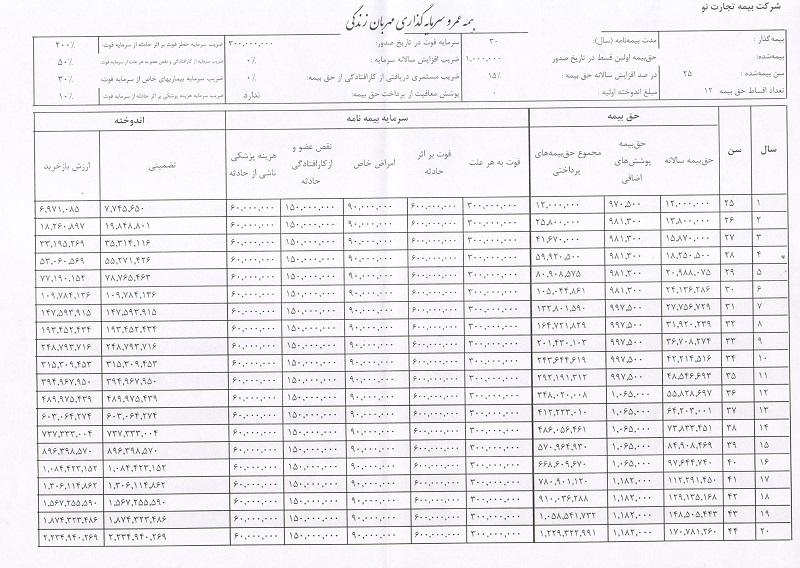 شرکت بیمه تجارت نو
بیمه عمر و سرمایه گذاری مهربان زندگی
بیمه‌گذار : مدت بیمه‌نامه (سال): ۳۰ سرمایه فوت در تاریخ صدور: ۳۰۰,۰۰۰,۰۰۰ ضریب سرمایه خطر فوت بر اثر حادثه از سرمایه فوت: ۲۰۰٪
بیمه‌شده: حق‌بیمه اولین قسط در تاریخ صدور ۱,۰۰۰,۰۰۰ ضریب افزایش سالانه سرمایه : ۰٪ ضریب سرمایه از کارافتادگی و نقص عضو به هر علت از سرمایه فوت: ۵۰٪
سن بیمه‌شده : ۲۵ در صد افزایش سالانه حق بیمه : ۱۵٪ ضریب مستمری دریافتی از کارافتادگی از حق بیمه: ۰٪ ضریب سرمایه بیماریهای خاص از سرمایه فوت: ۳۰٪
تعداد اقساط حق بیمه ۱۲ مبلغ اندوخته اولیه : ۰ پوشش معافیت از پرداخت حق بیمه: ندارد ضریب سرمایه هزینه پزشکی بر اثر حادثه از سرمایه فوت: ۱۰٪
سال سن حق بیمه سرمایه بیمه نامه اندوخته
حق‌بیمه سالانه حق‌بیمه پوشش‌های اضافی مجموع حق‌بیمه‌های پرداختی فوت به هر علت فوت بر اثر حادثه امراض خاص نقص عضو و ازکارافتادگی حادثه هزینه پزشکی ناشی از حادثه تضمینی ارزش بازخرید
۱ ۲۵ ۱۲,۰۰۰,۰۰۰ ۹۷۰,۵۰۰ ۱۲,۰۰۰,۰۰۰ ۳۰۰,۰۰۰,۰۰۰ ۶۰۰,۰۰۰,۰۰۰ ۹۰,۰۰۰,۰۰۰ ۱۵۰,۰۰۰,۰۰۰ ۶۰,۰۰۰,۰۰۰ ۷,۷۴۵,۶۵۰ ۶,۹۷۱,۰۸۵
۲ ۲۶ ۱۳,۸۰۰,۰۰۰ ۹۸۱,۳۰۰ ۲۵,۸۰۰,۰۰۰ ۳۰۰,۰۰۰,۰۰۰ ۶۰۰,۰۰۰,۰۰۰ ۹۰,۰۰۰,۰۰۰ ۱۵۰,۰۰۰,۰۰۰ ۶۰,۰۰۰,۰۰۰ ۱۹,۸۴۸,۸۰۱ ۱۸,۲۶۰,۸۹۷
۳ ۲۷ ۱۵,۸۷۰,۰۰۰ ۹۸۱,۳۰۰ ۴۱,۶۷۰,۰۰۰ ۳۰۰,۰۰۰,۰۰۰ ۶۰۰,۰۰۰,۰۰۰ ۹۰,۰۰۰,۰۰۰ ۱۵۰,۰۰۰,۰۰۰ ۶۰,۰۰۰,۰۰۰ ۳۵,۳۱۴,۱۱۶ ۳۳,۱۹۵,۲۶۹
۴ ۲۸ ۱۸,۲۵۰,۵۰۰ ۹۸۱,۳۰۰ ۵۹,۹۲۰,۵۰۰ ۳۰۰,۰۰۰,۰۰۰ ۶۰۰,۰۰۰,۰۰۰ ۹۰,۰۰۰,۰۰۰ ۱۵۰,۰۰۰,۰۰۰ ۶۰,۰۰۰,۰۰۰ ۵۵,۲۷۱,۴۲۶ ۵۳,۰۶۰,۵۶۹
۵ ۲۹ ۲۰,۹۸۸,۰۷۵ ۹۸۱,۳۰۰ ۸۰,۹۰۸,۵۷۵ ۳۰۰,۰۰۰,۰۰۰ ۶۰۰,۰۰۰,۰۰۰ ۹۰,۰۰۰,۰۰۰ ۱۵۰,۰۰۰,۰۰۰ ۶۰,۰۰۰,۰۰۰ ۷۸,۷۶۵,۴۶۳ ۷۷,۱۹۰,۱۵۴
۶ ۳۰ ۲۴,۱۳۶,۲۸۶ ۹۸۱,۳۰۰ ۱۰۵,۰۴۴,۸۶۱ ۳۰۰,۰۰۰,۰۰۰ ۶۰۰,۰۰۰,۰۰۰ ۹۰,۰۰۰,۰۰۰ ۱۵۰,۰۰۰,۰۰۰ ۶۰,۰۰۰,۰۰۰ ۱۰۹,۷۸۴,۱۳۶ ۱۰۹,۷۸۴,۱۳۶
۷ ۳۱ ۲۷,۷۵۶,۷۲۹ ۹۹۷,۵۰۰ ۱۳۲,۸۰۱,۵۹۰ ۳۰۰,۰۰۰,۰۰۰ ۶۰۰,۰۰۰,۰۰۰ ۹۰,۰۰۰,۰۰۰ ۱۵۰,۰۰۰,۰۰۰ ۶۰,۰۰۰,۰۰۰ ۱۴۷,۵۹۳,۹۱۵ ۱۴۷,۵۹۳,۹۱۵
۸ ۳۲ ۳۱,۹۲۰,۲۳۹ ۹۹۷,۵۰۰ ۱۶۴,۷۲۱,۸۲۹ ۳۰۰,۰۰۰,۰۰۰ ۶۰۰,۰۰۰,۰۰۰ ۹۰,۰۰۰,۰۰۰ ۱۵۰,۰۰۰,۰۰۰ ۶۰,۰۰۰,۰۰۰ ۱۹۳,۴۵۲,۴۳۴ ۱۹۳,۴۵۲,۴۳۴
۹ ۳۳ ۳۶,۷۰۸,۲۷۴ ۹۹۷,۵۰۰ ۲۰۱,۴۳۰,۱۰۳ ۳۰۰,۰۰۰,۰۰۰ ۶۰۰,۰۰۰,۰۰۰ ۹۰,۰۰۰,۰۰۰ ۱۵۰,۰۰۰,۰۰۰ ۶۰,۰۰۰,۰۰۰ ۲۴۸,۷۹۳,۷۱۶ ۲۴۸,۷۹۳,۷۱۶
۱۰ ۳۴ ۴۲,۲۱۴,۵۱۶ ۹۹۷,۵۰۰ ۲۴۳,۶۴۴,۶۱۹ ۳۰۰,۰۰۰,۰۰۰ ۶۰۰,۰۰۰,۰۰۰ ۹۰,۰۰۰,۰۰۰ ۱۵۰,۰۰۰,۰۰۰ ۶۰,۰۰۰,۰۰۰ ۳۱۵,۳۰۹,۴۵۳ ۳۱۵,۳۰۹,۴۵۳
۱۱ ۳۵ ۴۸,۵۴۶,۶۹۳ ۹۹۷,۵۰۰ ۲۹۲,۱۹۱,۳۱۲ ۳۰۰,۰۰۰,۰۰۰ ۶۰۰,۰۰۰,۰۰۰ ۹۰,۰۰۰,۰۰۰ ۱۵۰,۰۰۰,۰۰۰ ۶۰,۰۰۰,۰۰۰ ۳۹۴,۹۶۷,۹۵۰ ۳۹۴,۹۶۷,۹۵۰
۱۲ ۳۶ ۵۵,۸۲۸,۶۹۷ ۱,۰۶۵,۰۰۰ ۳۴۸,۰۲۰,۰۰۸ ۳۰۰,۰۰۰,۰۰۰ ۶۰۰,۰۰۰,۰۰۰ ۹۰,۰۰۰,۰۰۰ ۱۵۰,۰۰۰,۰۰۰ ۶۰,۰۰۰,۰۰۰ ۴۸۹,۹۷۵,۴۳۹ ۴۸۹,۹۷۵,۴۳۹
۱۳ ۳۷ ۶۴,۲۰۳,۰۰۱ ۱,۰۶۵,۰۰۰ ۴۱۲,۲۲۳,۰۱۰ ۳۰۰,۰۰۰,۰۰۰ ۶۰۰,۰۰۰,۰۰۰ ۹۰,۰۰۰,۰۰۰ ۱۵۰,۰۰۰,۰۰۰ ۶۰,۰۰۰,۰۰۰ ۶۰۳,۰۶۴,۲۷۴ ۶۰۳,۰۶۴,۲۷۴
۱۴ ۳۸ ۷۳,۸۳۳,۴۵۱ ۱,۰۶۵,۰۰۰ ۴۸۶,۰۵۶,۴۶۱ ۳۰۰,۰۰۰,۰۰۰ ۶۰۰,۰۰۰,۰۰۰ ۹۰,۰۰۰,۰۰۰ ۱۵۰,۰۰۰,۰۰۰ ۶۰,۰۰۰,۰۰۰ ۷۳۷,۳۳۳,۰۰۴ ۷۳۷,۳۳۳,۰۰۴
۱۵ ۳۹ ۸۴,۹۰۸,۴۶۹ ۱,۰۶۵,۰۰۰ ۵۷۰,۹۶۴,۹۳۰ ۳۰۰,۰۰۰,۰۰۰ ۶۰۰,۰۰۰,۰۰۰ ۹۰,۰۰۰,۰۰۰ ۱۵۰,۰۰۰,۰۰۰ ۶۰,۰۰۰,۰۰۰ ۸۹۶,۳۹۸,۵۷۰ ۸۹۶,۳۹۸,۵۷۰
۱۶ ۴۰ ۹۷,۶۴۴,۷۴۰ ۱,۰۶۵,۰۰۰ ۶۶۸,۶۰۹,۶۷۰ ۳۰۰,۰۰۰,۰۰۰ ۶۰۰,۰۰۰,۰۰۰ ۹۰,۰۰۰,۰۰۰ ۱۵۰,۰۰۰,۰۰۰ ۶۰,۰۰۰,۰۰۰ ۱,۰۸۴,۴۲۳,۱۵۲ ۱,۰۸۴,۴۲۳,۱۵۲
۱۷ ۴۱ ۱۱۲,۲۹۱,۴۵۰ ۱,۱۸۲,۰۰۰ ۷۸۰,۹۰۱,۱۲۰ ۳۰۰,۰۰۰,۰۰۰ ۶۰۰,۰۰۰,۰۰۰ ۹۰,۰۰۰,۰۰۰ ۱۵۰,۰۰۰,۰۰۰ ۶۰,۰۰۰,۰۰۰ ۱,۳۰۶,۱۱۴,۸۶۲ ۱,۳۰۶,۱۱۴,۸۶۲
۱۸ ۴۲ ۱۲۹,۱۳۵,۱۶۸ ۱,۱۸۲,۰۰۰ ۹۱۰,۰۳۶,۲۸۸ ۳۰۰,۰۰۰,۰۰۰ ۶۰۰,۰۰۰,۰۰۰ ۹۰,۰۰۰,۰۰۰ ۱۵۰,۰۰۰,۰۰۰ ۶۰,۰۰۰,۰۰۰ ۱,۵۶۷,۲۵۵,۵۹۰ ۱,۵۶۷,۲۵۵,۵۹۰
۱۹ ۴۳ ۱۴۸,۵۰۵,۴۴۳ ۱,۱۸۲,۰۰۰ ۱,۰۵۸,۵۴۱,۷۳۲ ۳۰۰,۰۰۰,۰۰۰ ۶۰۰,۰۰۰,۰۰۰ ۹۰,۰۰۰,۰۰۰ ۱۵۰,۰۰۰,۰۰۰ ۶۰,۰۰۰,۰۰۰ ۱,۸۷۴,۳۲۳,۴۸۶ ۱,۸۷۴,۳۲۳,۴۸۶
۲۰ ۴۴ ۱۷۰,۷۸۱,۲۶۰ ۱,۱۸۲,۰۰۰ ۱,۲۲۹,۳۲۲,۹۹۱ ۳۰۰,۰۰۰,۰۰۰ ۶۰۰,۰۰۰,۰۰۰ ۹۰,۰۰۰,۰۰۰ ۱۵۰,۰۰۰,۰۰۰ ۶۰,۰۰۰,۰۰۰ ۲,۲۳۴,۹۴۰,۲۶۹ ۲,۲۳۴,۹۴۰,۲۶۹